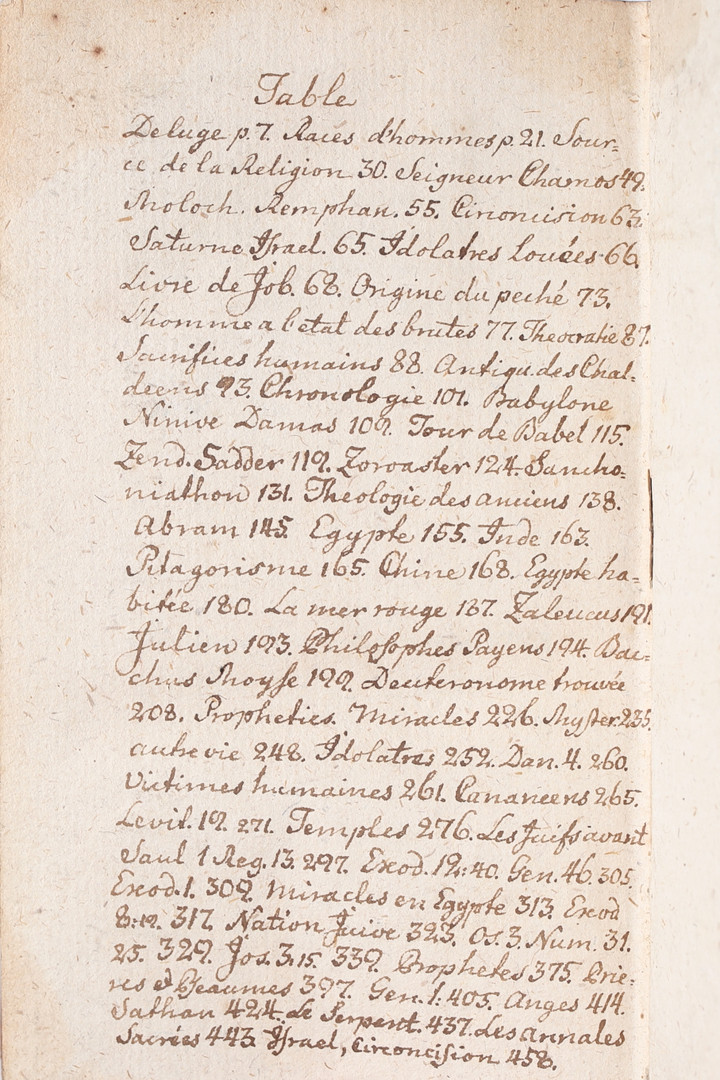 Table
Deluge p. 7. Races d'hommes p. 21. Sour=
ce de la Religion 30. Seigneur Chamos 49.
Moloch. Remphan. 55. Circoncision 63.
Saturne Israel. 65. Idolatres louées 66.
Livre de Job. 68. Origine du peché 73.
L'homme a l'etat des brutes 77. Theocratie 87.
Sacrifices humains 88. Antiqu. des Chal=
deens 93. Chronologie 101. Babylone
Ninive Damas 109. Tour de Babel 115.
Zend. Sadder 119. Zoroaster 124. Sancho=
niathon 131. Theologie des anciens 138.
Abram 145. Egypte 155. Inde 163.
Pitagorisme 165. Chine 168. Egypte ha=
bitée 180. La mer rouge 187. Zaleucus 191.
Julien 193. Philosophes Payens 194. Bac=
chus Moyse 199. Deuteronome trouvée
208. Propheties. Miracles 226. Myster. 235.
autre vie 248. Idolatres 252. Dan. 4. 260.
Victimes humaines 261. Cananeens 265.
Levit. 19. 271. Temples 276. Les Juifs avant
Saul 1 Reg. 13. 297. Exod. 12:40. Gen. 46. 305.
Exod. 1. 309. Miracles en Egypte 313. Exod
8:19. 317. Nation Juive 323. Os. 3. Num. 31.
25. 329. Jos. 3.15. 339. Prophetes 375. Prie=
res & Pseaumes 397. Gen. 1: 405. Anges 414.
Sathan 424. Le Serpent. 437. Les annales
Sacrées 443. Israel, Circoncision 458.